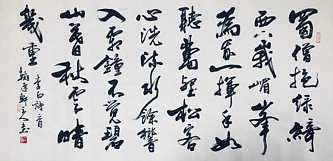 蜀僧抱綠綺
西下峨嵋峯
為我一揮手如
聽萬壑松客
心洗流水餘響
入霜鐘不覺碧
山暮秋雲暗
幾重
李白詩